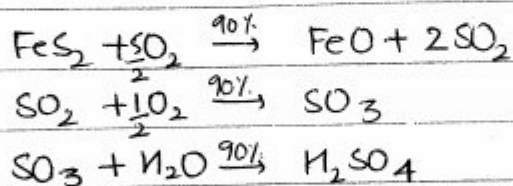 FeS₂ + 5/2 O₂ 90%→ FeO + 2SO₂
SO₂ + 1/2 O₂ 90%→ SO₃
SO₃ + H₂O 90%→ H₂SO₄